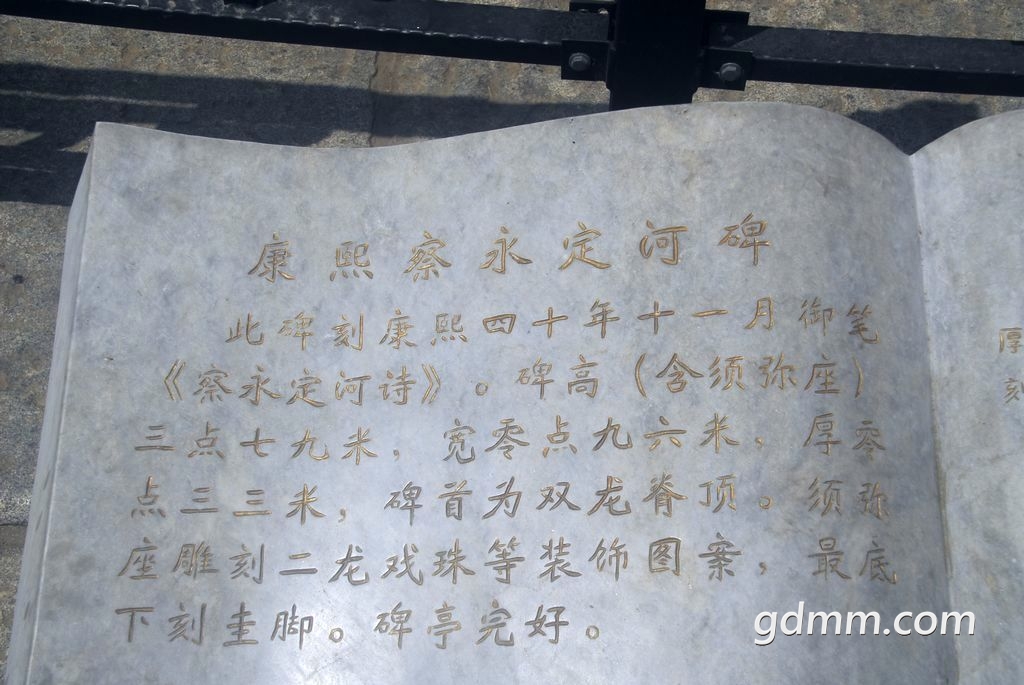 康熙察永定河碑
此碑刻康熙四十年十一月御笔
《察永定河诗》。碑高(含须弥座)
三点七九米，宽零点九六米，厚零
点三三米，碑首为双龙脊顶。须弥
座雕刻二龙戏珠等装饰图案，最底
下刻圭脚。碑亭完好。
厚
刻
gdmm.com